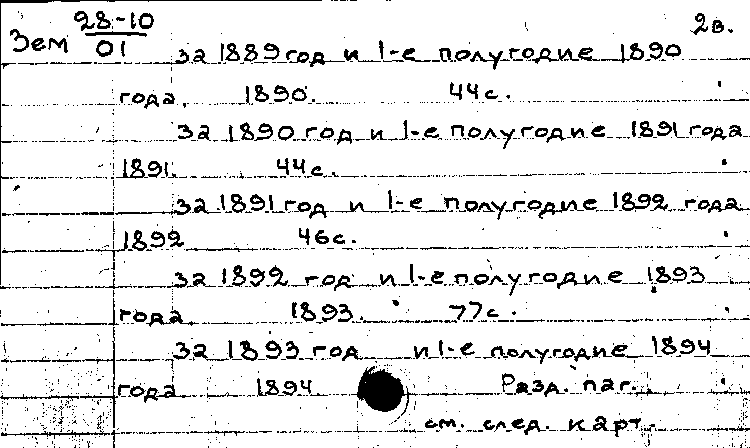 28-10 2в.
Зем 01 за 1889 год и 1-е полугодие 1890
года. 1890. 44с.
за 1890 год и 1-е полугодие 1891 года
1891. 44с.
за 1891 год и 1-е полугодие 1892 года
1892 46с.
за 1892 год и 1-е полугодие 1893
года. 1893. 77с.
за 1893 год и 1-е полугодие 1894
года 1894. Разд. паг.
см. след. карт.